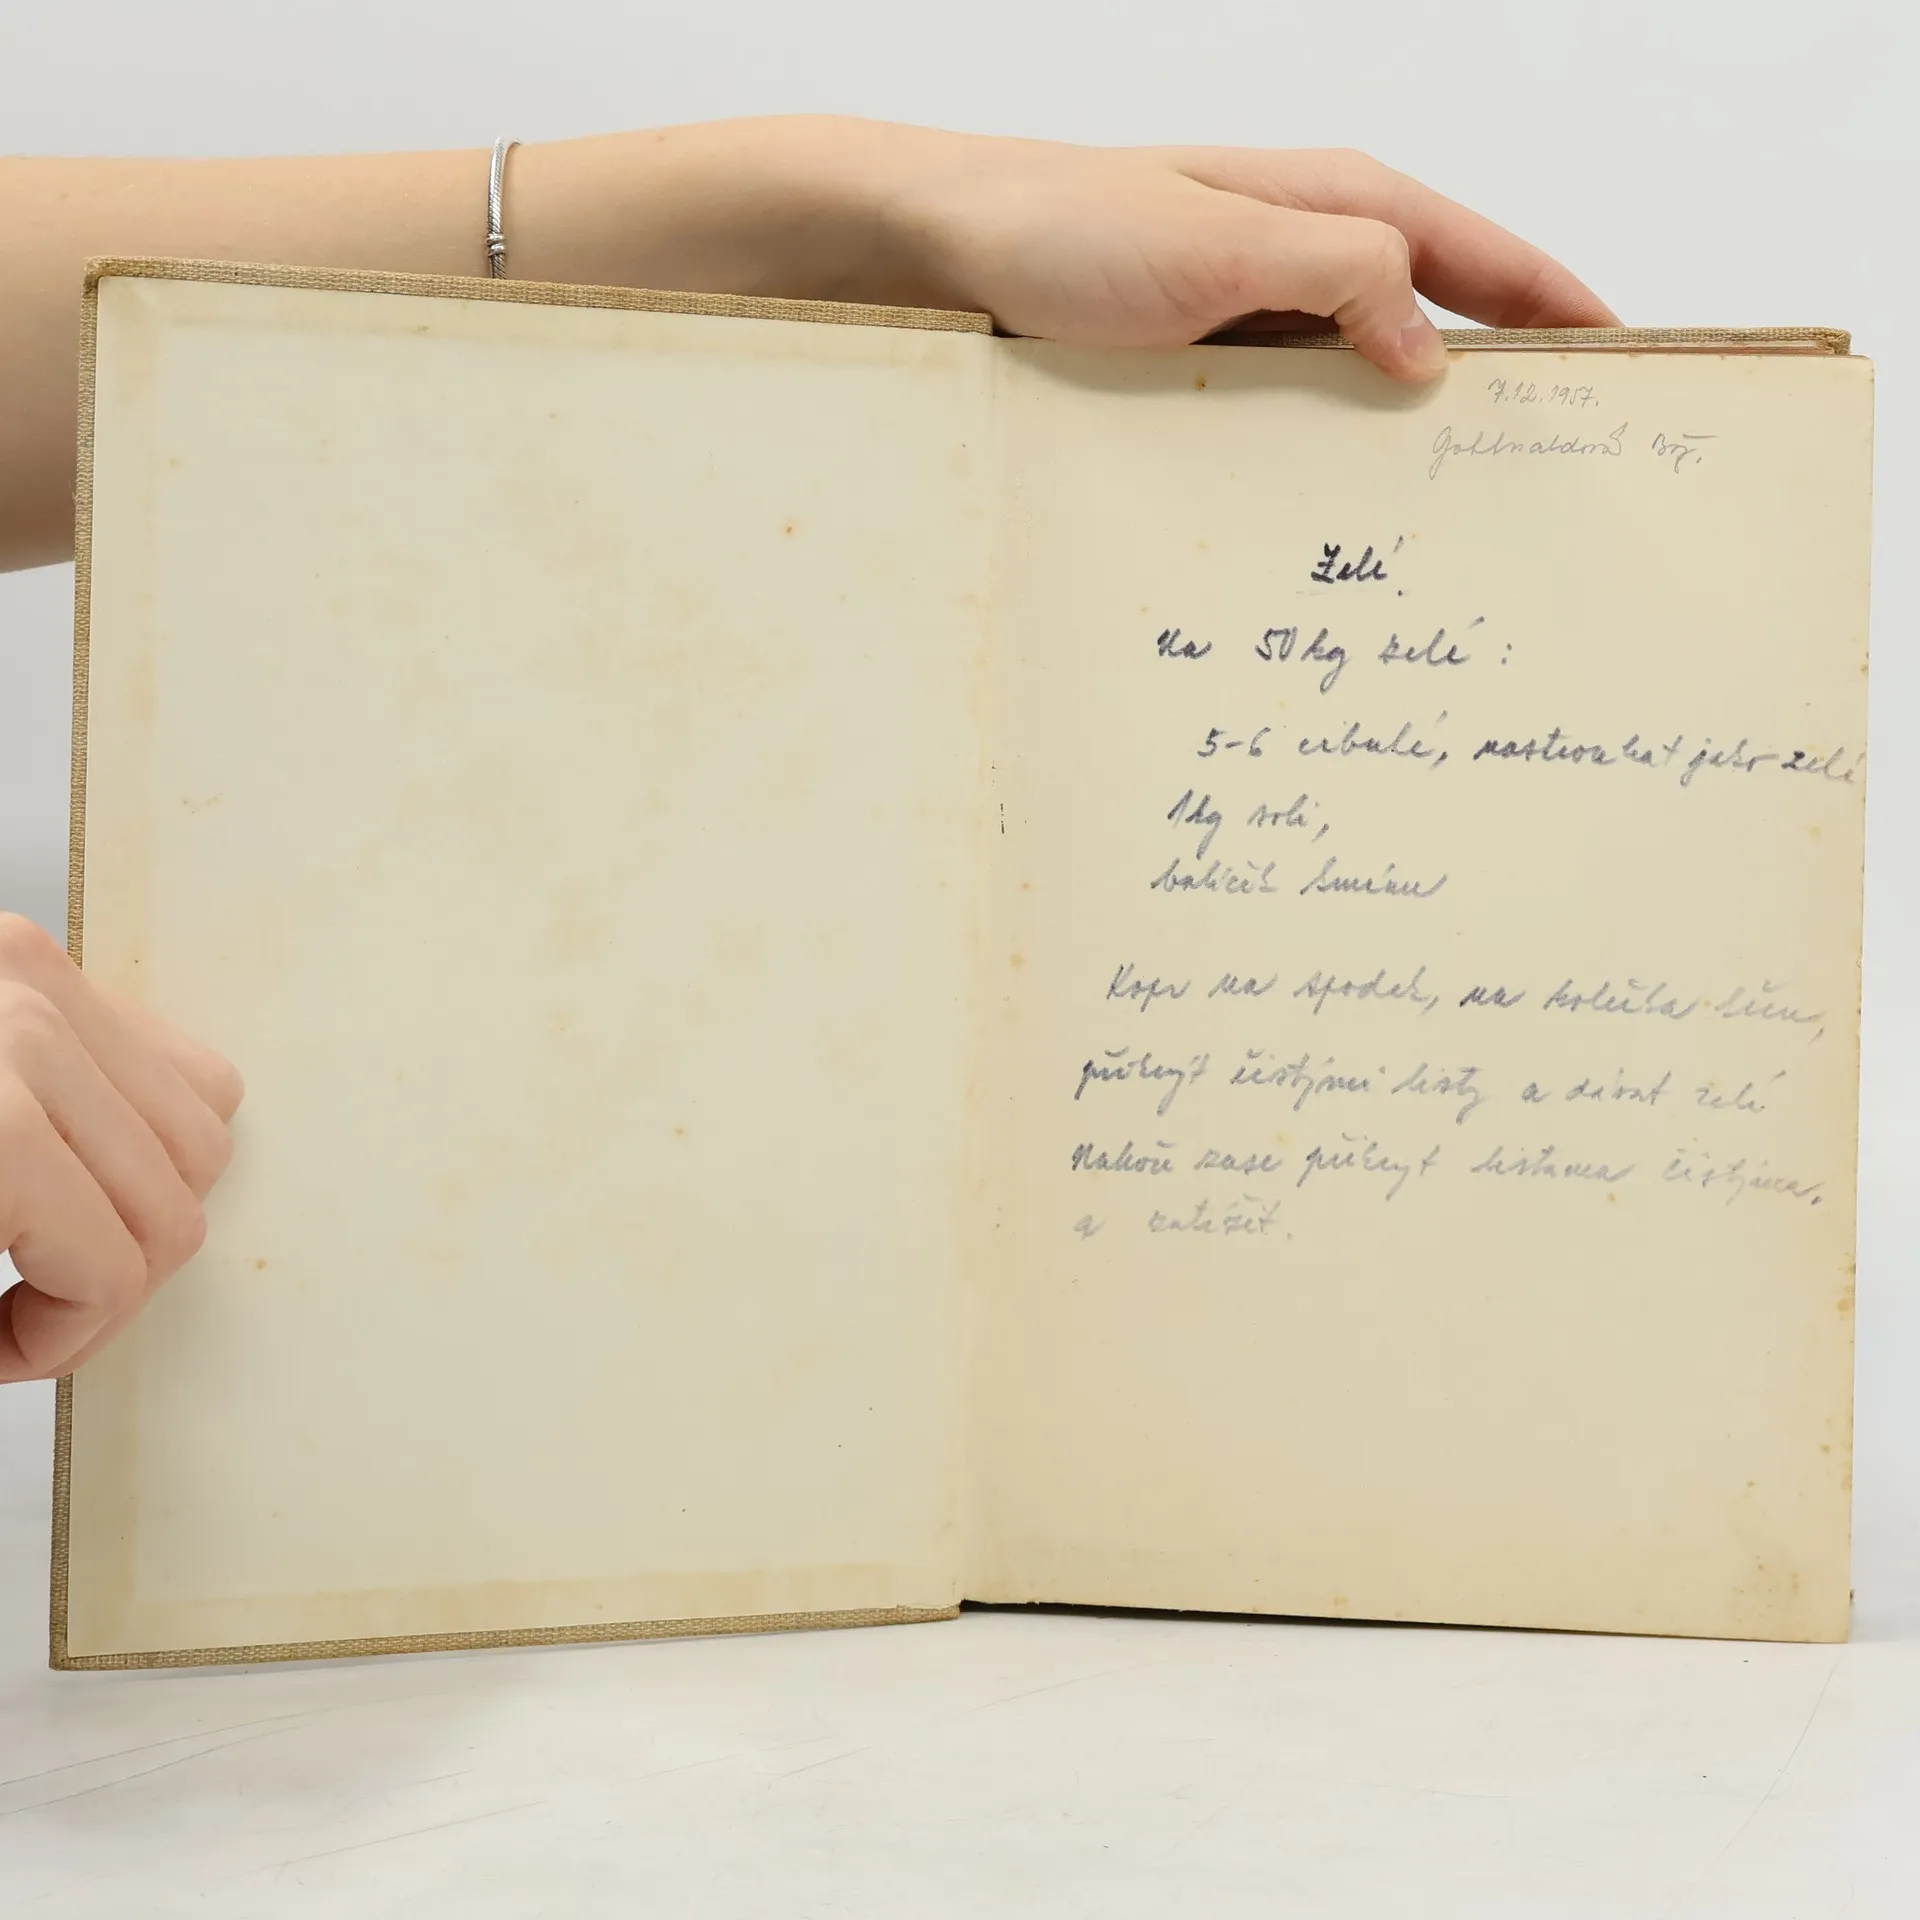 7.12.1957.
Gottwaldová Bož.
Zelí.
Na 50 kg zelí :
5-6 cibulí, nastrouhat jako zelí
1kg soli,
balíček kmínu
Kopr na spodek, na kolečka křen,
přikrýt čistými listy a dávat zelí
Nahoru zase přikrýt listama čistýma,
a zatížit.